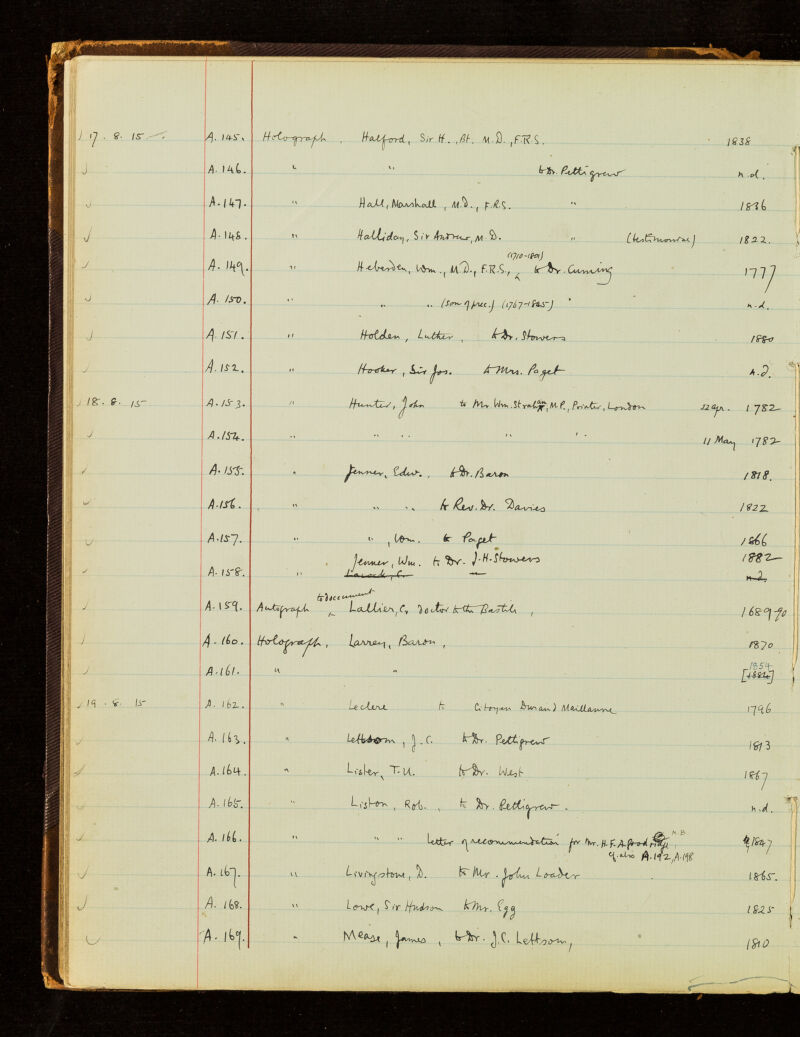 17 . 8. 15 A. 145. Holograph . Halford, Sir H. , Bt. M.D. , F.R.S. 1838
A. 146. " " to Dr. Pettigrew n.d.
A. 147. " Hall, Marshall , M.D., F.R.S. " 1836
A. 148. " Halliday, Sir Andrew, M.D. " (testimonial) 1822.
A. 149. " Heberden, Wm., M.D., F.R.S., (1710-1801) to Dr. Cuming 1777
A. 150. " " " (Son of prec.) (1767-1845) " n.d.
A. 151. " Holden, Luther , to Dr. Stowers 1880
A. 152. " Hooker, Sir Jos. to Mrs. Paget n.d.
18. 8. 15 A. 153. " Hunter, John to Mr Wm. Strahan, M.P., Printer, London 22 Apr. 1782
A. 154. " " " " " 11 May 1782
A. 155. " Jenner, Edw. , to Dr. Baron 1818.
A. 156. " " " to Rev. Dr. Davies 1822
A. 157. " " , Wm. to Paget 1866
A. 158. " Jenner, Wm. to Dr. J.H. Stowers 1882
n.d.
A. 159. Autograph to document Lallier, C, Doctor to the Bastile , 1689-90
A. 160. Holograph, Larrey, Baron , 1870
A. 161. " " 1854 [1882]
19 . 8. 15 A. 162. " Leclerc to Citoyen Durand Maillanne 1796
A. 163. " Lettsom , J.C. to Dr. Pettigrew 1813
A. 164. " Lister, T.H. to Dr. West 1867
A. 165. " Liston , Rob. , to Dr. Pettigrew . n.d.
A. 166. " " " Letter of recommendation for Mr. H.F.A. Goodridge, M.B. 1847
Cf. also A. 192, A. 198
A. 167. " Livingstone, D. to Mr. John Loader 1865.
A. 168. " Lowe, Sir Hudson to Mr. Egg 1825
A. 169. " Mease, James , to Dr. J.C. Lettsom, 1810